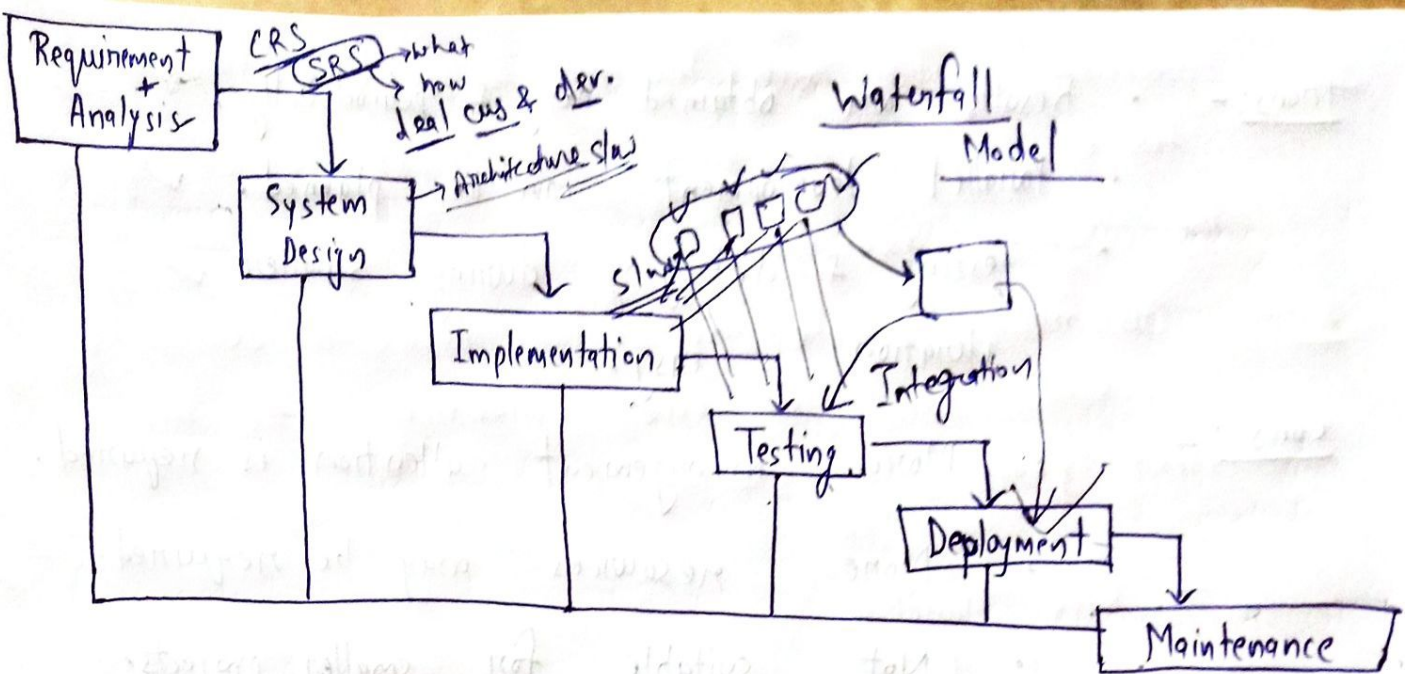 Requirement
+
Analysis
CRS
SRS → what
→ how
deal cus & der.
Waterfall
Model
System
Design
→ Architecture
Implementation
Integration
Testing
Deployment
Maintenance